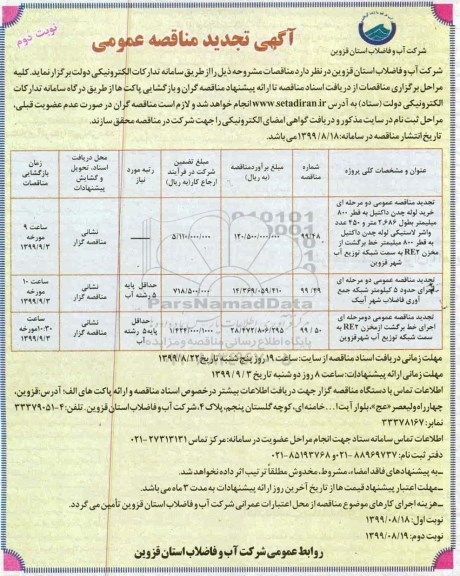 نوبت دوم
آگهی تجدید مناقصه عمومی
شرکت آب و فاضلاب استان قزوین
شرکت آب و فاضلاب استان قزوین در نظر دارد مناقصات مشروحه ذیل را از طریق سامانه تدارکات الکترونیکی دولت برگزار نماید. کلیه
مراحل برگزاری مناقصات از دریافت اسناد مناقصه تا ارائه پیشنهاد مناقصه گران و بازگشایی پاکت ها از طریق درگاه سامانه تدارکات
الکترونیکی دولت (ستاد) به آدرس www.setadiran.ir انجام خواهد شد و لازم است مناقصه گران در صورت عدم عضویت قبلی،
مراحل ثبت نام در سایت مذکور و دریافت گواهی امضای الکترونیکی را جهت شرکت در مناقصه محقق سازند.
تاریخ انتشار مناقصه در سامانه: ۱۳۹۹/۸/۱۸ می باشد.
عنوان و مشخصات کلی پروژه | شماره مناقصه | مبلغ برآورد مناقصه (به ریال) | مبلغ تضمین شرکت در فرآیند ارجاع کار (به ریال) | رتبه مورد نیاز | محل دریافت اسناد، تحویل و گشایش پیشنهادات | زمان بازگشایی مناقصات
تجدید مناقصه عمومی دو مرحله ای خرید لوله چدن داکتیل به قطر ۸۰۰ میلیمتر بطول ۲.۶۸۶ متر و ۴۵۰ عدد واشر لاستیکی لوله چدن داکتیل به قطر ۸۰۰ میلیمتر خط برگشت از مخزن RE۲ به سمت شبکه توزیع آب شهر قزوین | ۹۹/۴۸ | ۱۲۰/۵۰۰/۰۰۰/۰۰۰ | ۵/۱۱۰/۰۰۰/۰۰۰ | —— | نشانی مناقصه گزار | ساعت ۹ مورخه ۱۳۹۹/۹/۳
تجدید مناقصه عمومی دو مرحله ای اجرای حدود ۵ کیلومتر شبکه جمع آوری فاضلاب شهر آبیک | ۹۹/۴۹ | ۱۴/۳۶۹/۰۵۹/۴۱۰ | ۷۱۸/۵۰۰/۰۰۰ | حداقل پایه ۵ رشته آب | نشانی مناقصه گزار | ساعت ۱۰ مورخه ۱۳۹۹/۹/۳
تجدید مناقصه عمومی دو مرحله ای اجرای خط برگشت از مخزن RE۲ به سمت شبکه توزیع آب شهر قزوین | ۹۹/۵۰ | ۲۸/۴۷۲/۸۰۶/۲۹۵ | ۱/۴۲۴/۰۰۰/۰۰۰ | حداقل پایه ۵ رشته آب | نشانی مناقصه گزار | ساعت ۱۰:۳۰ مورخه ۱۳۹۹/۹/۳
ParsNamadData
پایگاه اطلاع رسانی مناقصه و مزایده
مهلت زمانی دریافت اسناد مناقصه از سایت: ساعت ۱۹ روز پنج شنبه تاریخ ۱۳۹۹/۸/۲۲
مهلت زمانی ارائه پیشنهادات: ساعت ۸ روز دو شنبه تاریخ ۱۳۹۹/۹/۳
اطلاعات تماس با دستگاه مناقصه گزار جهت دریافت اطلاعات بیشتر در خصوص اسناد مناقصه و ارائه پاکت های الف: آدرس: قزوین،
چهارراه ولیعصر «عج»، بلوار آیت ا... خامنه ای، کوچه گلستان پنجم، پلاک ۴، شرکت آب و فاضلاب استان قزوین. تلفن: ۴-۳۳۳۷۹۰۵۱
نمابر: ۳۳۳۷۸۱۶۷
اطلاعات تماس سامانه ستاد جهت انجام مراحل عضویت در سامانه: مرکز تماس ۲۷۳۱۳۱۳۱-۰۲۱
دفتر ثبت نام: ۸۸۹۶۹۷۳۷-۰۲۱ و ۸۵۱۹۳۷۶۸-۰۲۱
ـ به پیشنهادهای فاقد امضاء، مشروط، مخدوش مطلقاً ترتیب اثر داده نخواهد شد.
ـ مهلت اعتبار پیشنهاد قیمت ها از تاریخ آخرین روز ارائه پیشنهادات به مدت ۳ ماه می باشد.
ـ هزینه اجرای کارهای موضوع مناقصه از محل اعتبارات عمرانی شرکت آب و فاضلاب استان قزوین تأمین می گردد.
نوبت اول: ۱۳۹۹/۰۸/۱۸
نوبت دوم: ۱۳۹۹/۰۸/۱۹
روابط عمومی شرکت آب و فاضلاب استان قزوین